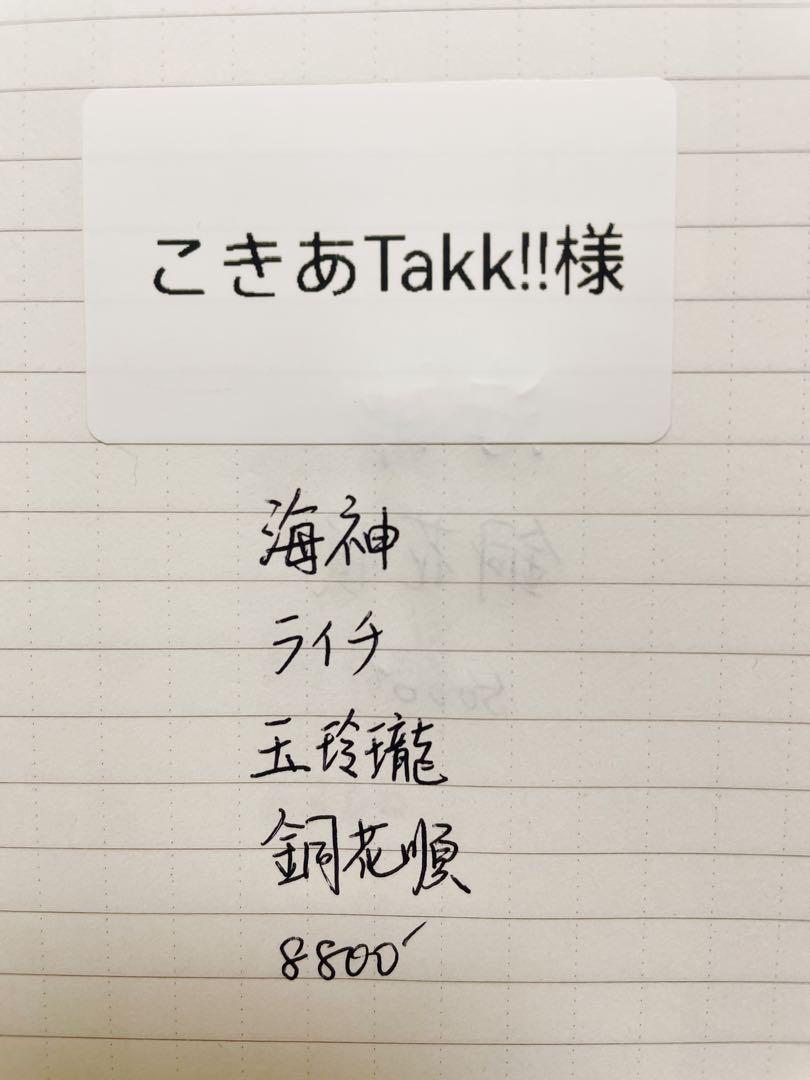 こきあTakk!!様
海神
ライチ
玉玲瓏
銅花順
8800